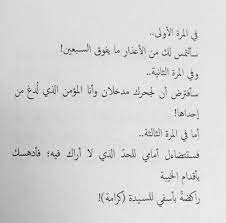 في المرة الأولى..
سألتمس لك من الأعذار ما يفوق السبعين!
وفي المرة الثانية..
سأفترض أن لجحرك مدخلان وأنا المؤمن الذي لُدغ من
إحداها!
أما في المرة الثالثة..
فستتضاءل أمامي للحدّ الذي لا أراك فيه؛ فأدهسك
بأقدام الخيبة
راكضةً بأسفي للسيدة (كرامة)!